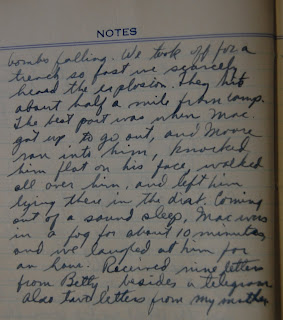 NOTES
bombs falling. We took off for a
trench so fast we scarcely
heard the explosion. They hit
about half a mile from camp.
The best part was when Mac.
got up, to go out, and Moore
ran into him, knocked
him flat on his face, walked
all over him, and left him
lying there in the dirt. Coming
out of a sound sleep, Mac was
in a fog for about 10 minutes
and we laughed at him for
an hour. Received nine letters
from Betty, besides a telegram
Also two letters from my mother